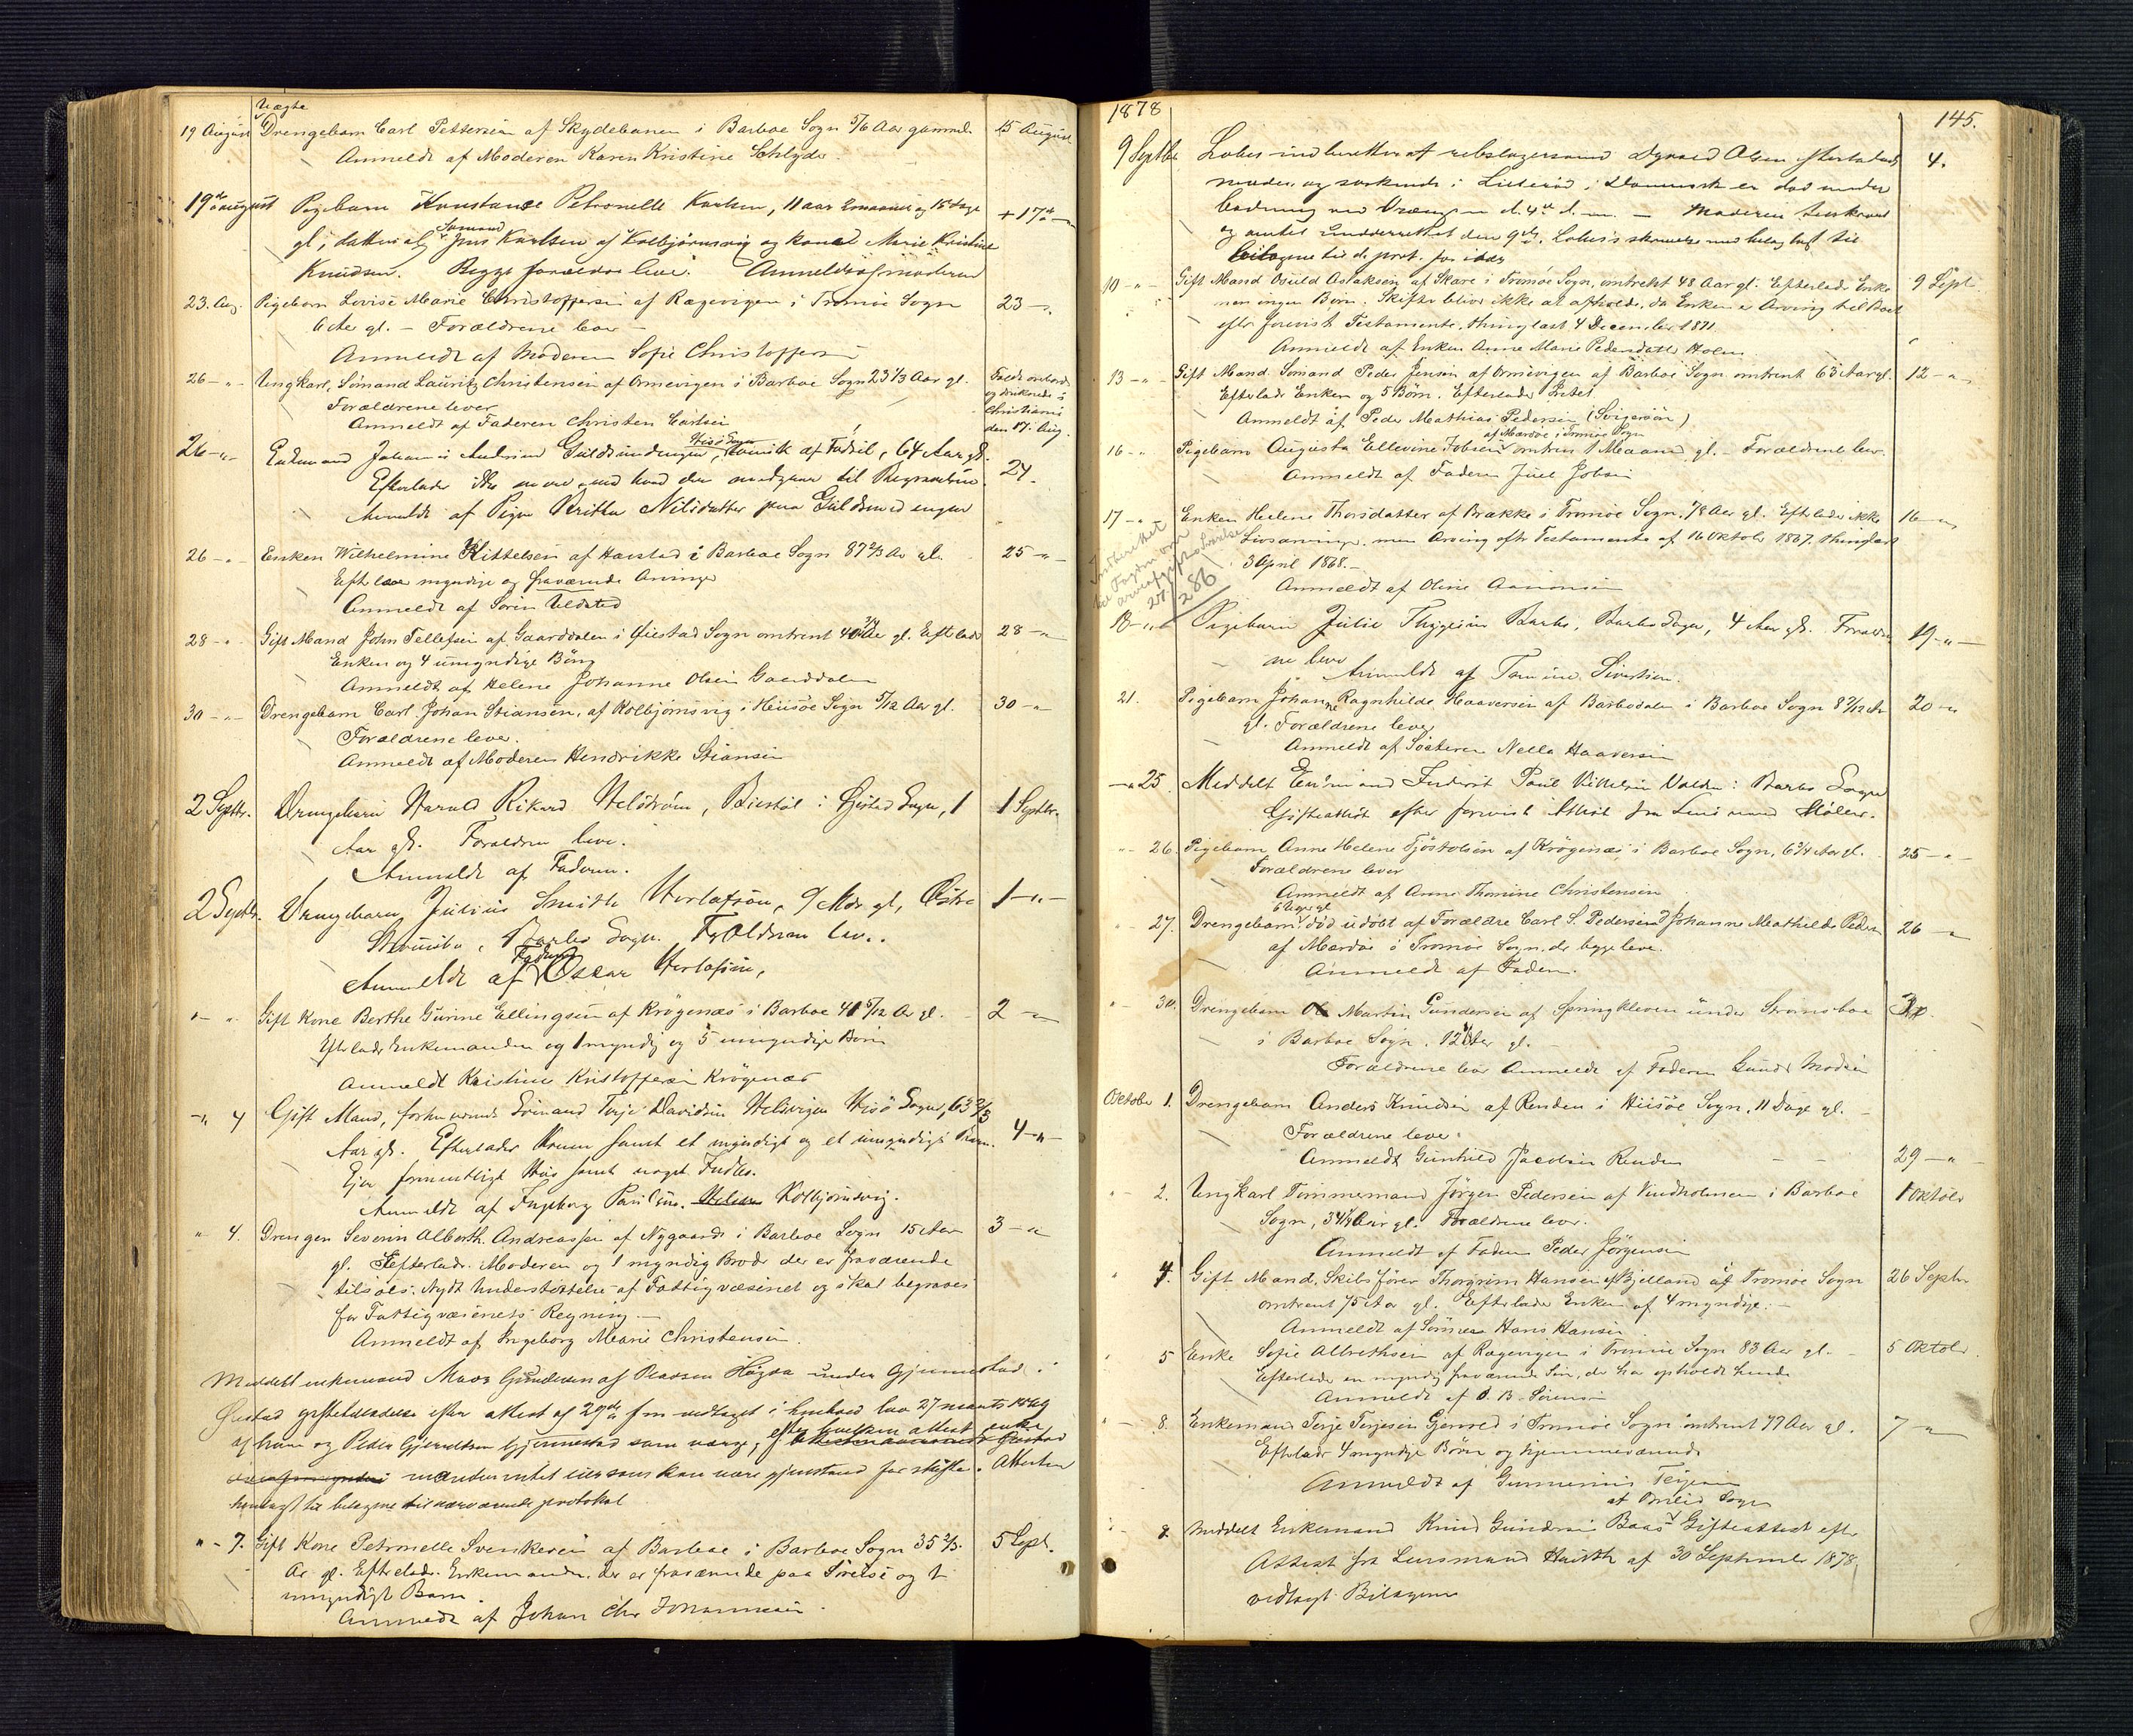 Uægte
19 August Drengebarn Carl Pettersen af Skydebanen i Barboe Sogn 5/6 Aar gammel 15 August
Anmeldt af Moderen Karen Kristine Schlyder.
19de august Pigebarn Konstance Petronelle Karlsen, 11 aar 2 maaned og 15 dage + 17de
gl; datter af Sømand Jens Karlsen af Kolbjørnsvig og kone Marie Kristine
Knudsen. Begge forældre leve. Anmeldt af moderen
23. Aug. Pigebarn Lovise Marie Christoffersen af Rægevigen i Tromøe Sogn 23 -
6 Aar gl. - Forældrene lever -
Anmeldt af Moderen Sofie Christoffersen
26 - " - Ungkarl, Sømand Lauritz Christensen af Ormevigen i Barboe Sogn 23 1/3 Aar gl.
Forældrene lever
Anmeldt af Faderen Christen Carlsen
Faldt overbord
og druknede i
Christiania
den 17. Aug.
26 - " - Enkemand Johannes Guldsmedengen, Hisø Sogn, af Fødsel, 64 Aar gl. 24.
Efterlader ikke mere end hvad der medgaar til Begravelsen.
Anmeldt af Pigen Berthe Nilsdatter paa Guldsmedengen
26 - " Enken Wilhelmine Kittelsen af Harstad i Barboe Sogn 87 2/3 Aar gl. 25 - "
Efterlader myndige og fraværende Arvinger
Anmeldt af Søren Ueldsted
28 - " Gift Mand John Tellefsen af Gaarddalen i Øiestad Sogn omtrent 40 3/4 Aar gl. Efterlader 28 - "
Enken og 4 umyndige Børn
Anmeldt af Helene Johanne Olsen Gaarddalen
30 - " - Drengebarn Carl Johan Stiansen, af Kolbjørnsvig i Hiisøe Sogn 5/12 Aar gl. 30 - "
Forældrene lever.
Anmeldt af Moderen Hendrikke Stiansen
2 Septbr. Drengebarn Harald Rikard Helstrøm, Biestøl i Øiestad Sogn, 1 1 Septbr.
Aar gl. Forældrene leve.
Anmeldt af Faderen.
2 Septbr. Drengebarn Julius Smith Herlofsøn, 9 Mdr. gl, Østre 1 - " -
Strømsbo, Barbo Sogn. Forældrene lev.
Anmeldt af Faderen Oscar Herlofsøn,
" - " Gift Kone Berthe Gurine Ellingsen af Krøgenæs i Barboe 41 5/12 Aar gl. 2 - "
Efterlader Enkemanden og 1 myndig og 5 umyndige Børn
Anmeldt Kristine Kristoffersen Krøgenæs
- " 4 Gift Mand, forhenværende Sømand Terje Davidsen Helsvigen Hisø Sogn, 63 2/3 4 - " -
Aar gl. Efterlader Konen samt et myndigt og et umyndigt Barn.
Ejer formentligt Hus samt noget Indbo.
Anmeldt af Ingeborg Paulsen. Kolbjørnsvig.
" 4. Drengen Severin Alberth Andreassen af Nygaard i Barboe Sogn 15 Aar 3 - "
gl. Efterlader Moderen og 1 myndig Broder der er fraværende
tilsøes. Nydt Understøttelse af Fattigvæsenet og skal begraves
for Fattigvæsenets Regning. -
Anmeldt af Ingeborg Marie Christensen.
Meddelt enkemand Moses Gundersen af Pladsen Høgaa under Gjennestad i
Øiestad giftetilladelse efter attest af 29de f.m vedtaget i henhold lov 27 marts 1869
af ham og Peder Gjerudtsen Gjennestad som værge, efter hvilken attest enke
manden intet eier som kan være gjenstand for skifte. Attesten
henlagt til bilagene til nærværende protokol
" - 7. Gift Kone Petronelle Svenkesen af Barboe i Barboe Sogn 35 2/3. 5 Sept.
Ar gl. Efterlader Enkemanden, der er fraværende paa Søreise og 1
umyndigt Barn.
Anmeldt af Johan Chr Johannesen.
1878 145.
9 Septbr. Lohrs indberetter at Olsen 4.
moder og søskende i Lillerød i Danmark er død under
badning ved d. 4de d. m. - Moderen tilskrevet
og amtet underrettet den 9de. Lohrs's skrivelse med bilag lagt til
bilagene til d. prot. for idag
10 - " Gift Mand Osuld Aslaksen af Skare i Tromøe Sogn, omtrent 48 Aar gl. Efterlader Enke 9 Sept.
men ingen Børn. Skifte bliver ikke at afholde, da Enken er Arving til Boet
efter forevist Testamente, thinglæst 4 December 1871.
Anmeldt af Enken Anne Marie Pedersdatter Holm.
13 - " Gift Mand Sømand Peder Jensen af Ormevigen af Barboe Sogn omtrent 63 Aar gl. 12 - "
Efterlader Enken og 5 Børn. Efterlader Intet
Anmeldt af Peder Mathias Pedersen (Svigersøn)
af Mærdøe i Tromøe Sogn
16 - " Pigebarn Augusta Ellevine Jobsen omtrent 1 Maaned gl. - Forældrene lever.
Anmeldt af Faderen Juel Jobsen
17 - " Enken Helene Thorsdatter af Brække i Tromøe Sogn, 78 Aar gl. Efterlader ikke 16 - "
Livsarvinger, men Arving efter Testamente af 16 Oktober 1867. thinglæst
3 April 1868. -
Anmeldt af Oline Aanonsen
Indberettet
til Fogden om
arveafgiftssvarelse
27/ 286
18 - " Pigebarn Julie Thygesen Barbo, Barbo Sogn, 4 Aar gl. Forældre- 19 - " -
ne leve
Anmeldt af Tomine Sivertsen.
21. Pigebarn Johanne Ragnhilde Haaversen af Barbodalen i Barboe Sogn 8 7/12 Aar 20 - "
gl. Forældrene lever
Anmeldt af Søsteren Nella Haaversen
- " 25. Meddelt Enkemand Inderst Paul Kittelsen Valder i Barbo Sogn
Gifteattest efter forevist Attest fra Lensmand Møller.
- " 26. Pigebarn Anne Helene Tjøstolsen af Krøgenæs i Barboe Sogn, 6 3/4 Aar gl. 25 - " -
Forældrene lever
Anmeldt af Anne Thomine Christensen
6 Uger gl
" 27. Drengebarn død udøbt af Forældre Carl S. Pedersen & Johanne Mathilde Pedersen 26 - "
af Mærdøe i Tromøe Sogn, der begge leve.
Anmeldt af Faderen.
" - 30. Drengebarn Martin Gundersen af Springkleven under Strømsboe
i Barboe Sogn. 12 Aar gl.
Forældrene lever Anmeldt af Faderen Gunder Madsen
Oktober 1. Drengebarn Anders Knudsen af Renden i Hiisøe Sogn, 11 Dage gl. -
Forældrene leve.
Anmeldt Gunhild Jacobsen Renden - - 29 - "
" - 2. Ungkarl Tømmermand Jørgen Pedersen af Vindholmen i Barboe 1 Oktober
Sogn, 34 1/4 Aar gl. Forældrene lever.
Anmeldt af Faderen Peder Jørgensen
" 4. Gift Mand, Skibsfører Thorgrim Hansen af Bjelland af Tromøe Sogn 26 Septbr
omtrent 75 Aar gl. Efterlader Enken af 4 myndige. -
Anmeldt af Sønnen Hans Hansen
" 5 Enke Sofie Albrethsen af Rægevigen i Tromøe Sogn 83 Aar gl. - 5 Oktober
Efterlader en myndig fraværende Søn, der har opholdt hende
Anmeldt af O. B. Sørensen
" - 8. Enkemand Terje Terjesen Gjerved i Tromøe Sogn omtrent 77 Aar gl. 7 - "
Efterlader 4 myndige Børn og hjemmeværende
Anmeldt af Gunnerius Terjesen
" - 8. Meddelt Enkemand Knud Gundersen Baas Gifteattest efter
Attest fra Lensmand af 30 September 1878,
vedlagt Bilagene